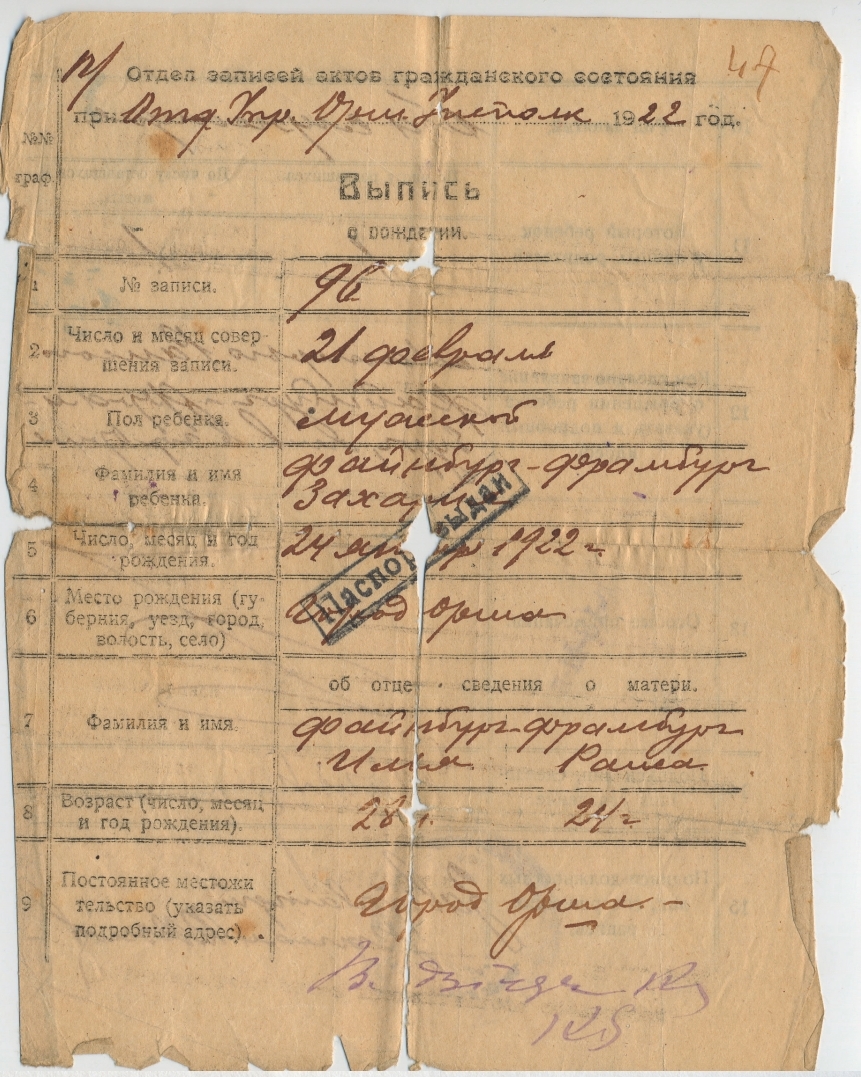 47
Отдел записей актов гражданского состояния
при Отд. Упр. Орш. Исполк 1922 год.
№№
граф.
Выпись
о рождении.
1 № записи. 96
2 Число и месяц совер-
шения записи. 21 февраля
3 Пол ребенка. мужской
4 Фамилия и имя
ребенка.
Файнбург-Фрамбург
Захарий
Паспорт выдан
5 Число, месяц и год
рождения. 24 января 1922 г.
6 Место рождения (гу-
берния, уезд, город,
волость, село)
Город Орша
об отце сведения о матери.
7 Фамилия и имя.
Файнбург-Фрамбург
Илья Раиса
8 Возраст (число, месяц
и год рождения). 28 г. 24 г.
9 Постоянное местожи
тельство (указать
подробный адрес).
Город Орша. -